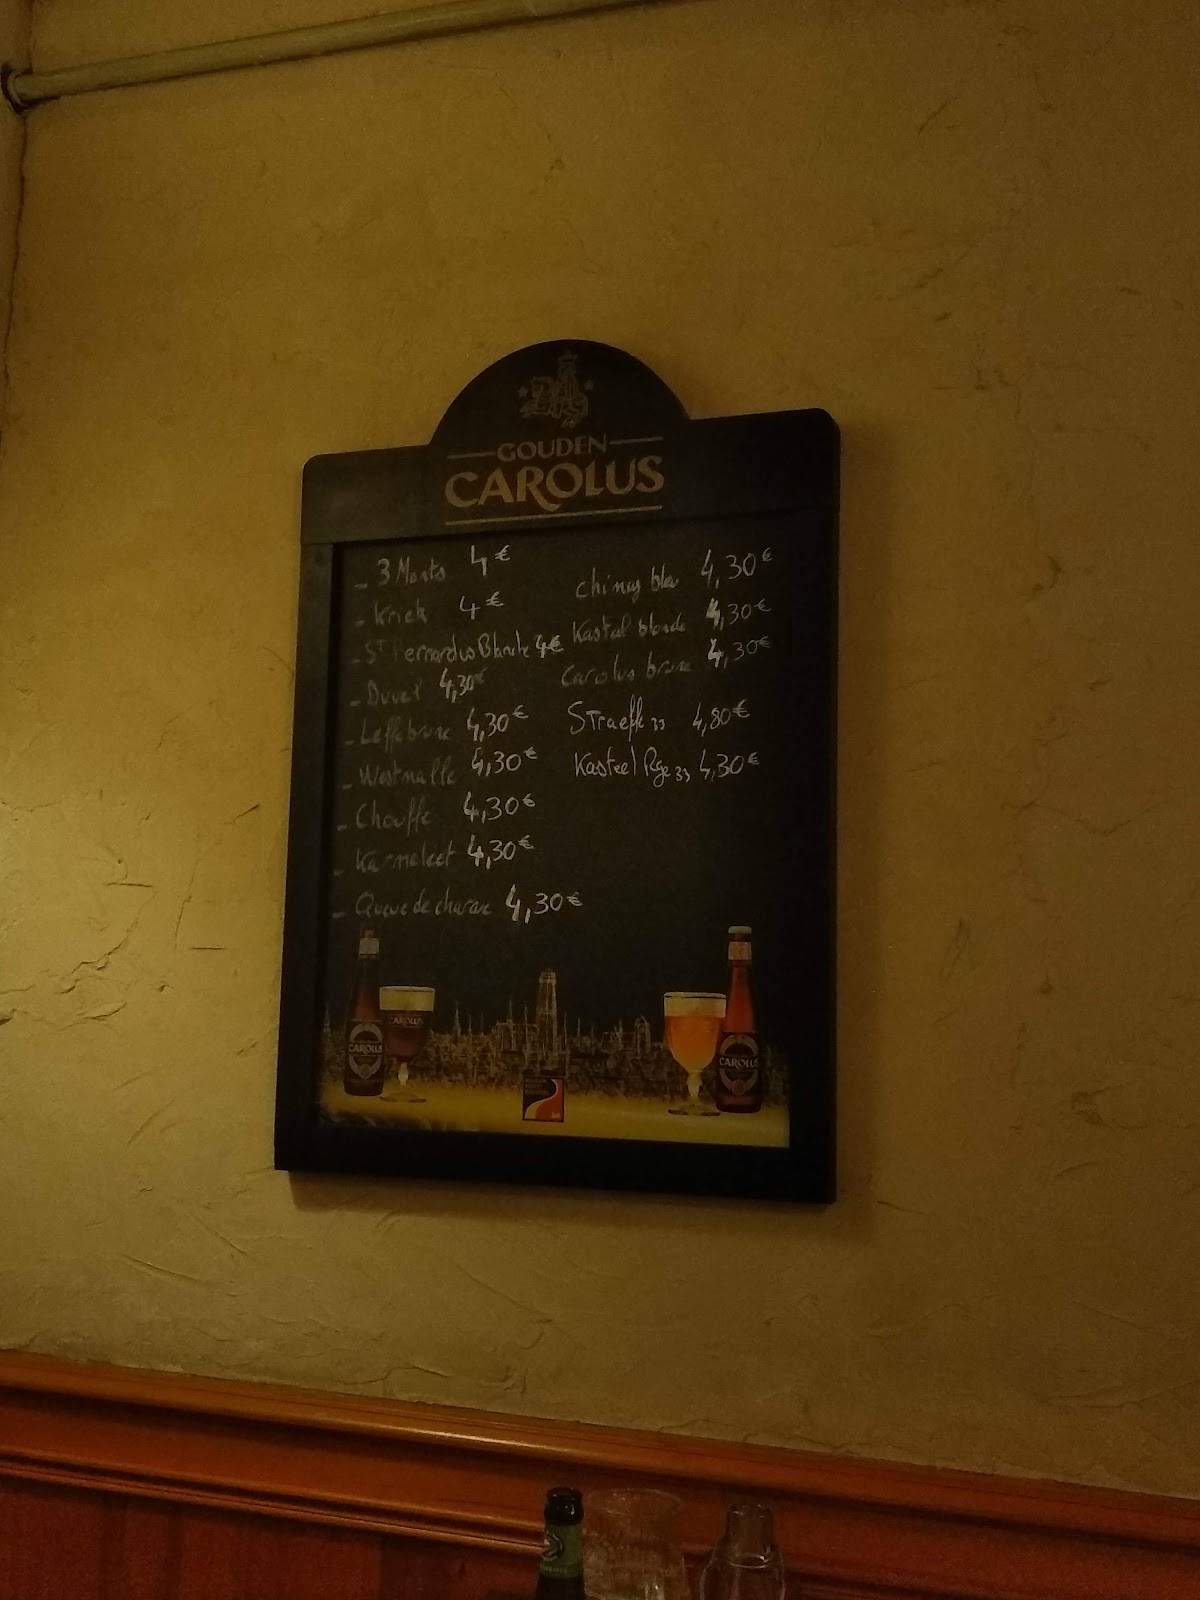 GOUDEN
CAROLUS
- 3 Monts 4€
- Kriek 4€
- ST Bernardus Blanche 4€
- Duvel 4,30€
- Leffe brune 4,30€
- Westmalle 4,30€
- Chouffe 4,30€
- Karmeleet 4,30€
- Queue de charue 4,30€
Chimay bleu 4,30€
Kastel blonde 4,30€
Carolus brune 4,30€
STraeffe 33 4,80€
Kasteel Rge 33 4,30€
CAROLUS
CAROLUS
CAROLUS